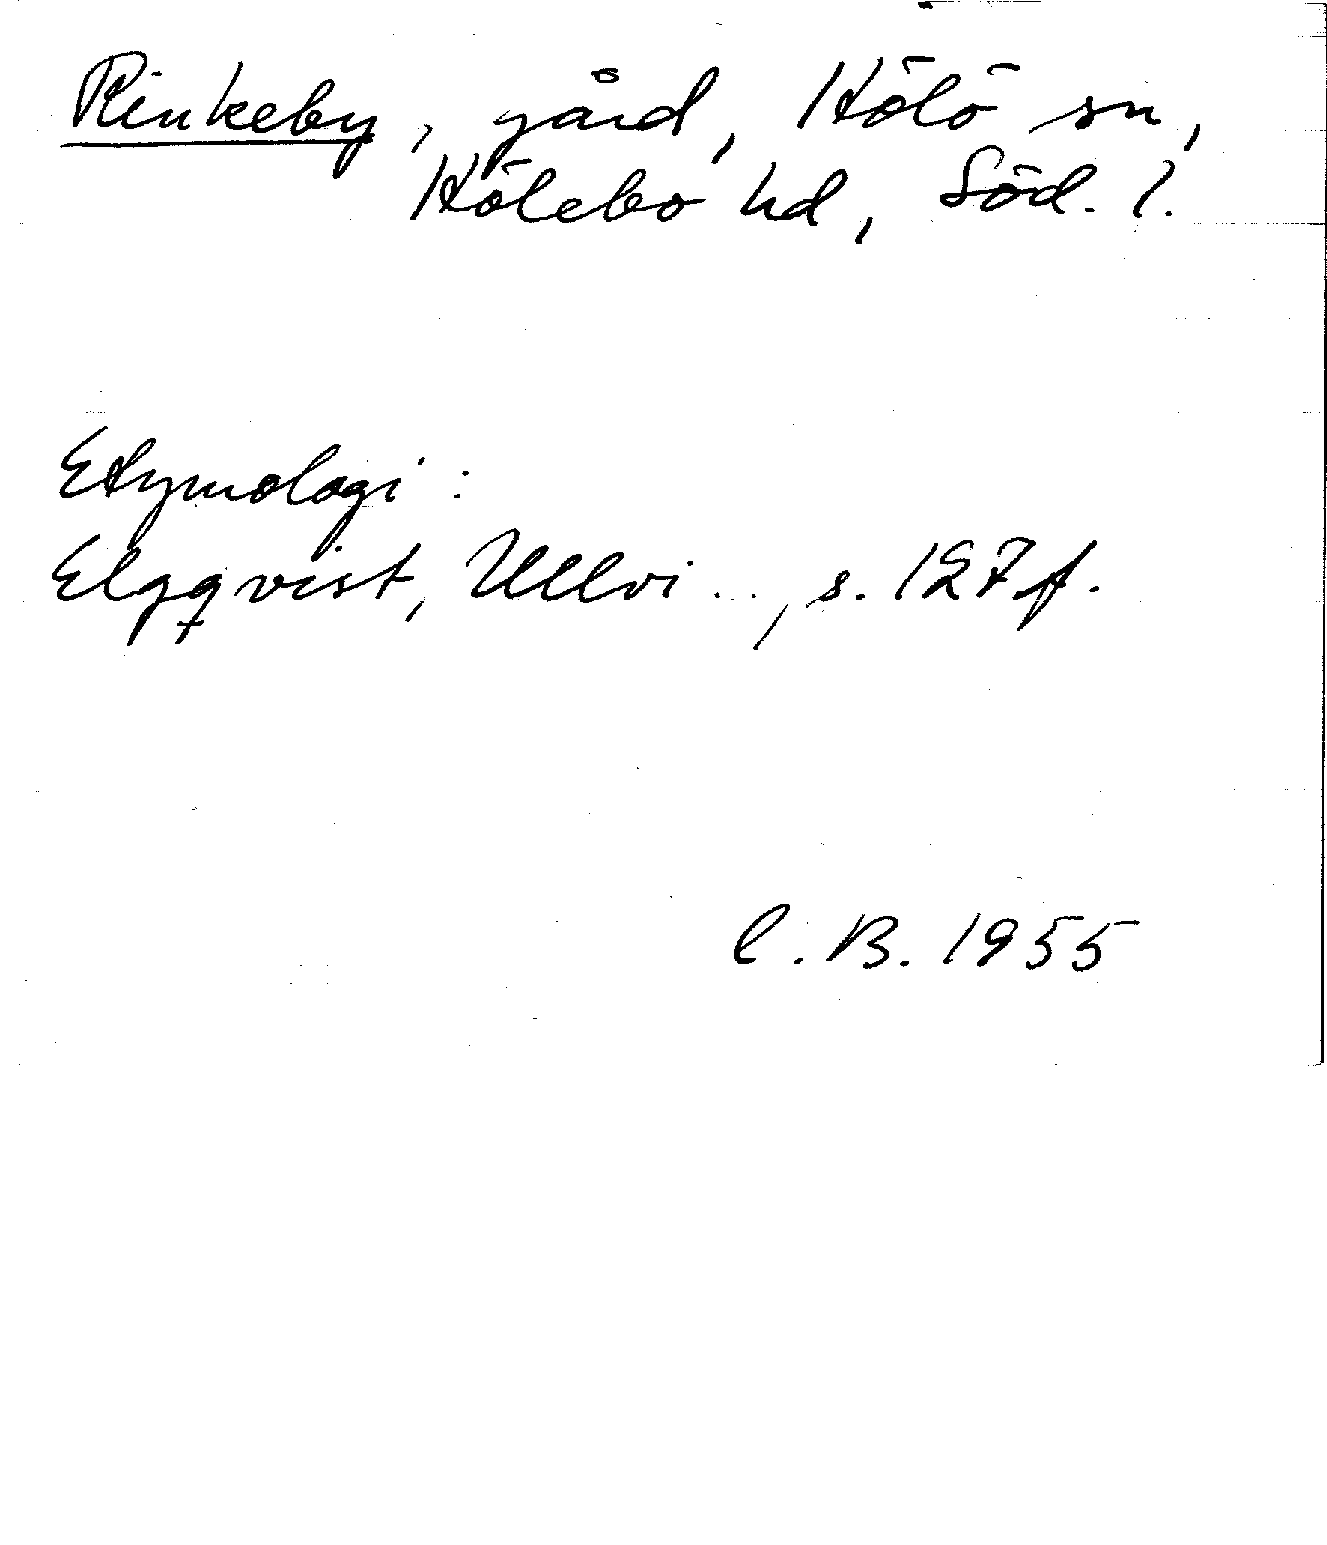 Rinkeby, gård, Hölö sn,
Hölebo hd, Söd. l.
Etymologi:
Elgqvist, Ullvi .., s. 127 f.
C. B. 1955